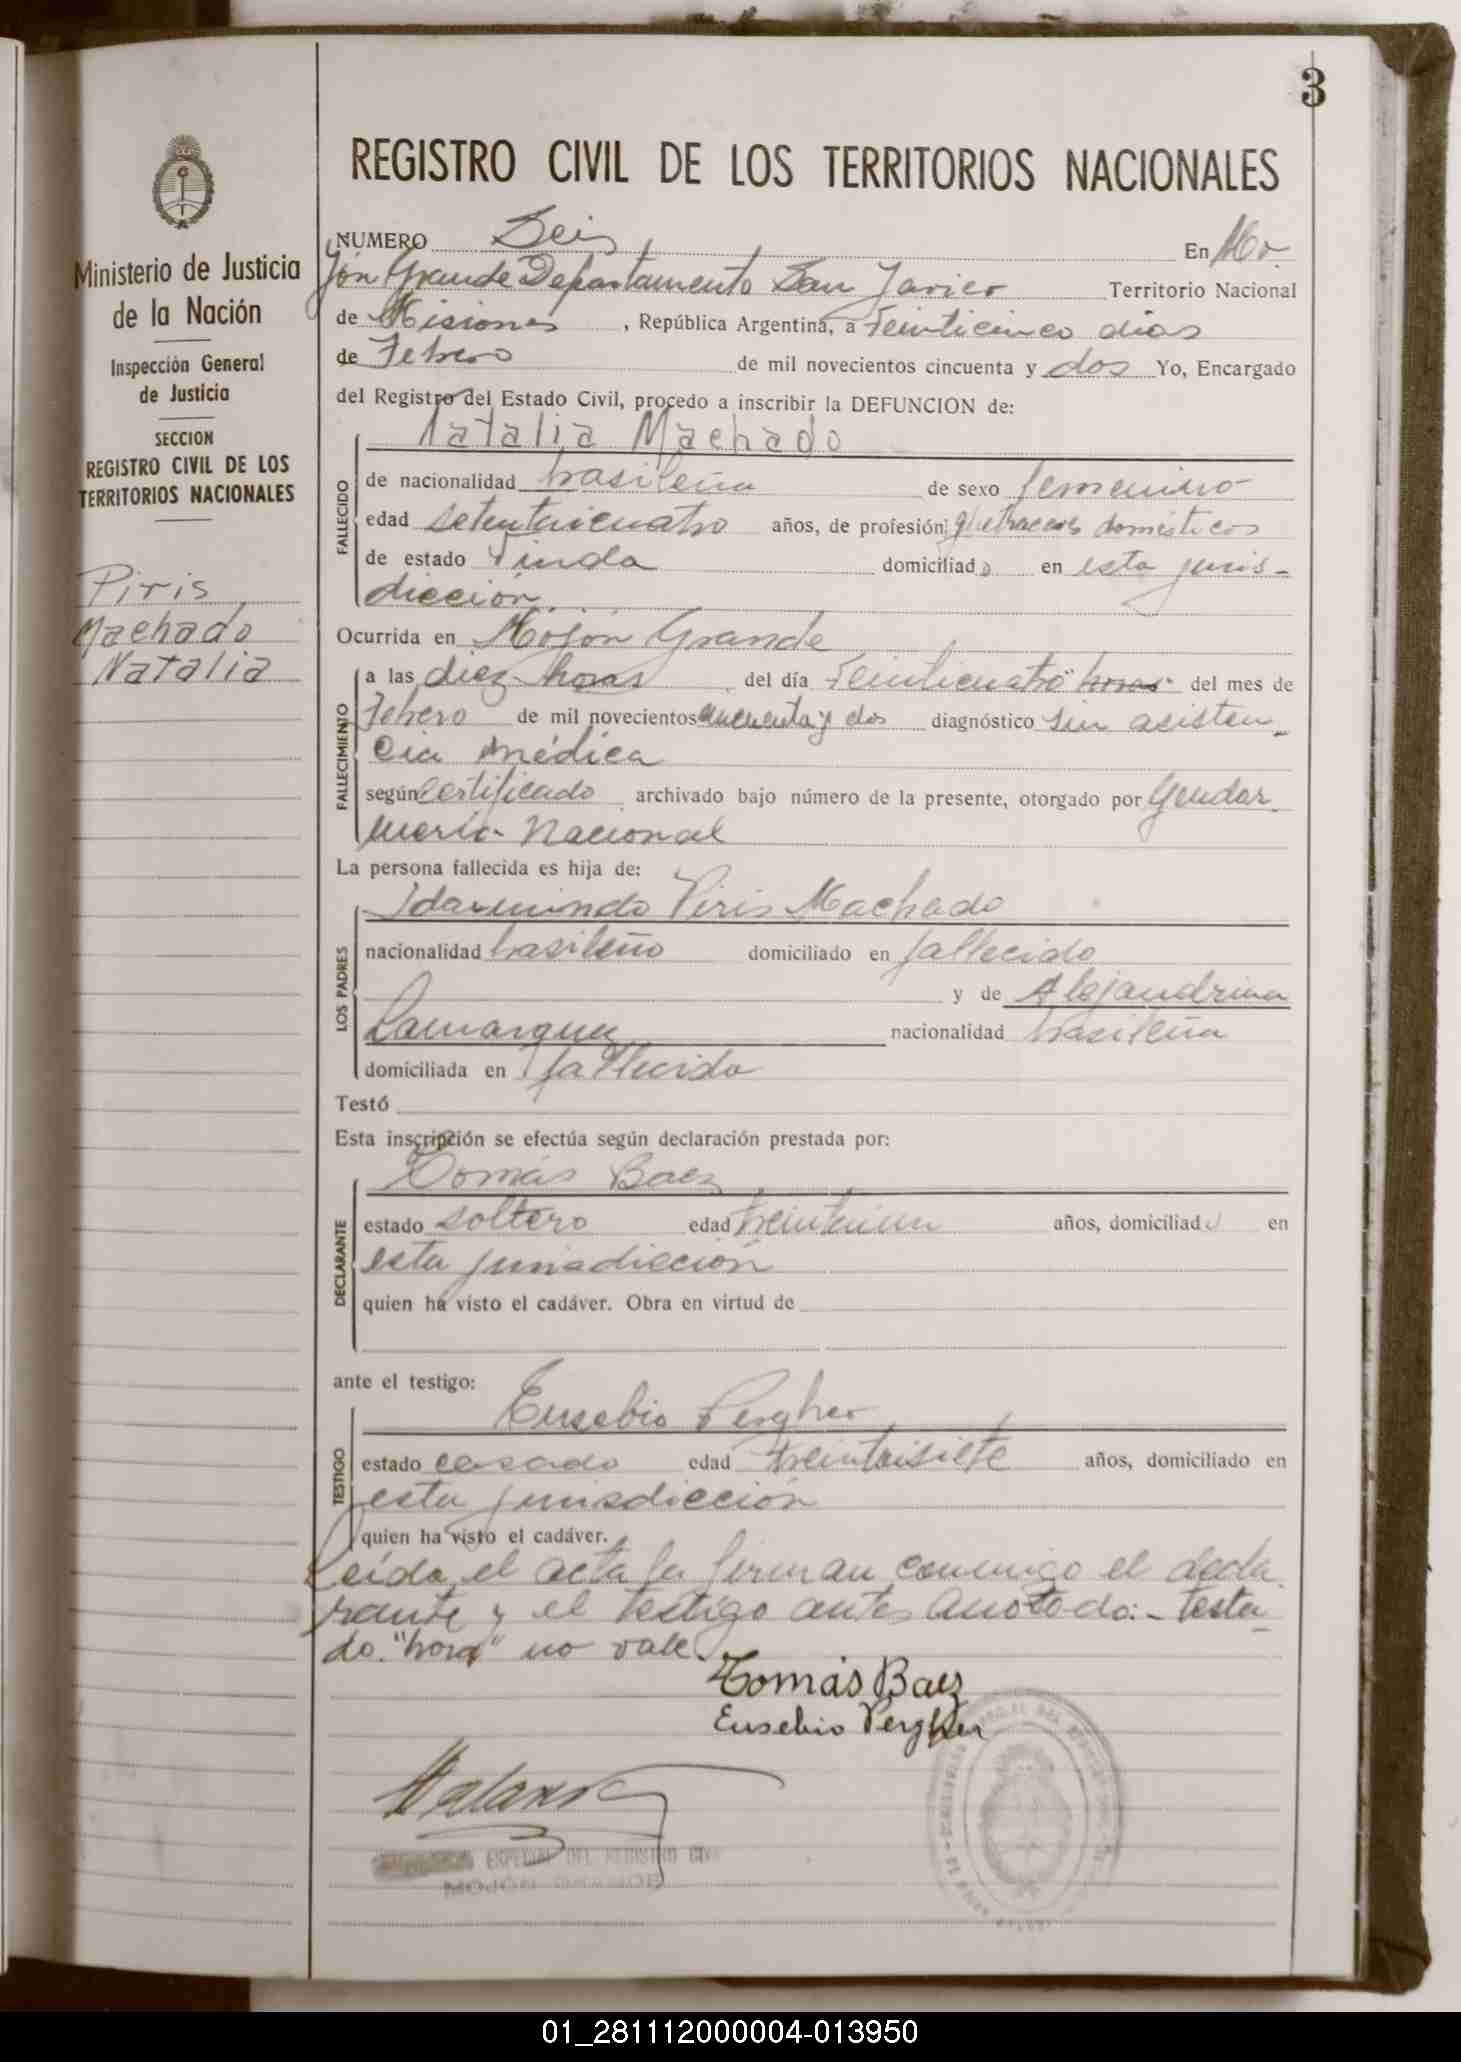 3
Ministerio de Justicia
de la Nación
Inspección General
de Justicia
SECCION
REGISTRO CIVIL DE LOS
TERRITORIOS NACIONALES
Piris
Machado
Natalia
REGISTRO CIVIL DE LOS TERRITORIOS NACIONALES
NUMERO Seis En Mo-
jón Grande Departamento San Javier Territorio Nacional
de Misiones, República Argentina, a Veinticinco dias
de Febrero de mil novecientos cincuenta y dos Yo, Encargado
del Registro del Estado Civil, procedo a inscribir la DEFUNCION de:
Natalia Machado
FALLECIDO
de nacionalidad brasileña de sexo femenino
edad setentaicuatro años, de profesión quehaceres domésticos
de estado Viuda domiciliado en esta juris-
dicción
Ocurrida en Mojón Grande
FALLECIMIENTO
a las diez horas del día Veinticuatro horas del mes de
Febrero de mil novecientos cincuenta y dos diagnóstico sin asisten-
cia médica
según certificado archivado bajo número de la presente, otorgado por Gendar-
mería Nacional
La persona fallecida es hija de:
LOS PADRES
Idarmindo Piris Machado
nacionalidad brasileño domiciliado en fallecido
y de Alejandrina
Lamarques nacionalidad brasileña
domiciliada en fallecida
Testó
Esta inscripción se efectúa según declaración prestada por:
DECLARANTE
Tomás Baez
estado soltero edad treintaiun años, domiciliado en
esta jurisdicción
quien ha visto el cadáver. Obra en virtud de
ante el testigo:
TESTIGO
Eusebio Pergher
estado casado edad treintaisiete años, domiciliado en
esta jurisdicción
quien ha visto el cadáver.
Leída el acta la firman conmigo el decla-
rante y el testigo antes anotado:- testa-
do "hora" no vale.
Tomás Baez
Eusebio Pergher
DEL REGISTRO CIVIL
MOJON GRANDE
01_281112000004-013950